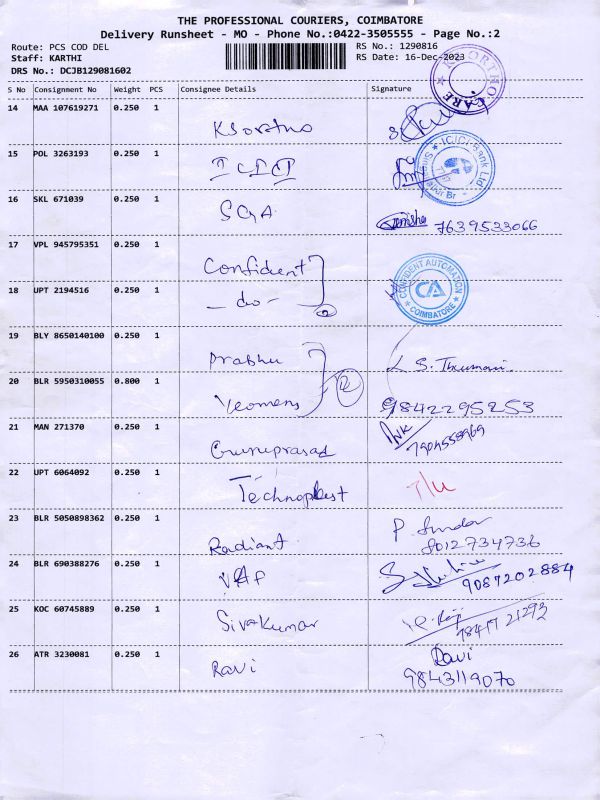 THE PROFESSIONAL COURIERS, COIMBATORE
Delivery Runsheet - MO - Phone No.:0422-3505555 - Page No.:2
Route: PCS COD DEL RS No.: 1290816
Staff: KARTHI RS Date: 16-Dec-2023
DRS No.: DCJB129081602
ORTHO CARE
S No Consignment No Weight PCS Consignee Details Signature
14 MAA 107619271 0.250 1
Ksortho
15 POL 3263193 0.250 1
ICICI
ICICI Bank Ltd
16 SKL 671039 0.250 1
SGA 7639533066
17 VPL 945795351 0.250 1
Confident
CONFIDENT AUTOMATION
CA
COIMBATORE
18 UPT 2194516 0.250 1
- do - 2
19 BLY 8650140100 0.250 1
Prabhu L. S.
20 BLR 5950310055 0.800 1
Yeomens 2 9842295253
21 MAN 271370 0.250 1
Guruprasad
22 UPT 6064092 0.250 1
Technoplast
23 BLR 5050898362 0.250 1
Radiant P. Sundar
8012734736
24 BLR 690388276 0.250 1
9087202884
25 KOC 60745889 0.250 1
Sivakumar
26 ATR 3230081 0.250 1
Ravi Ravi
9843119070